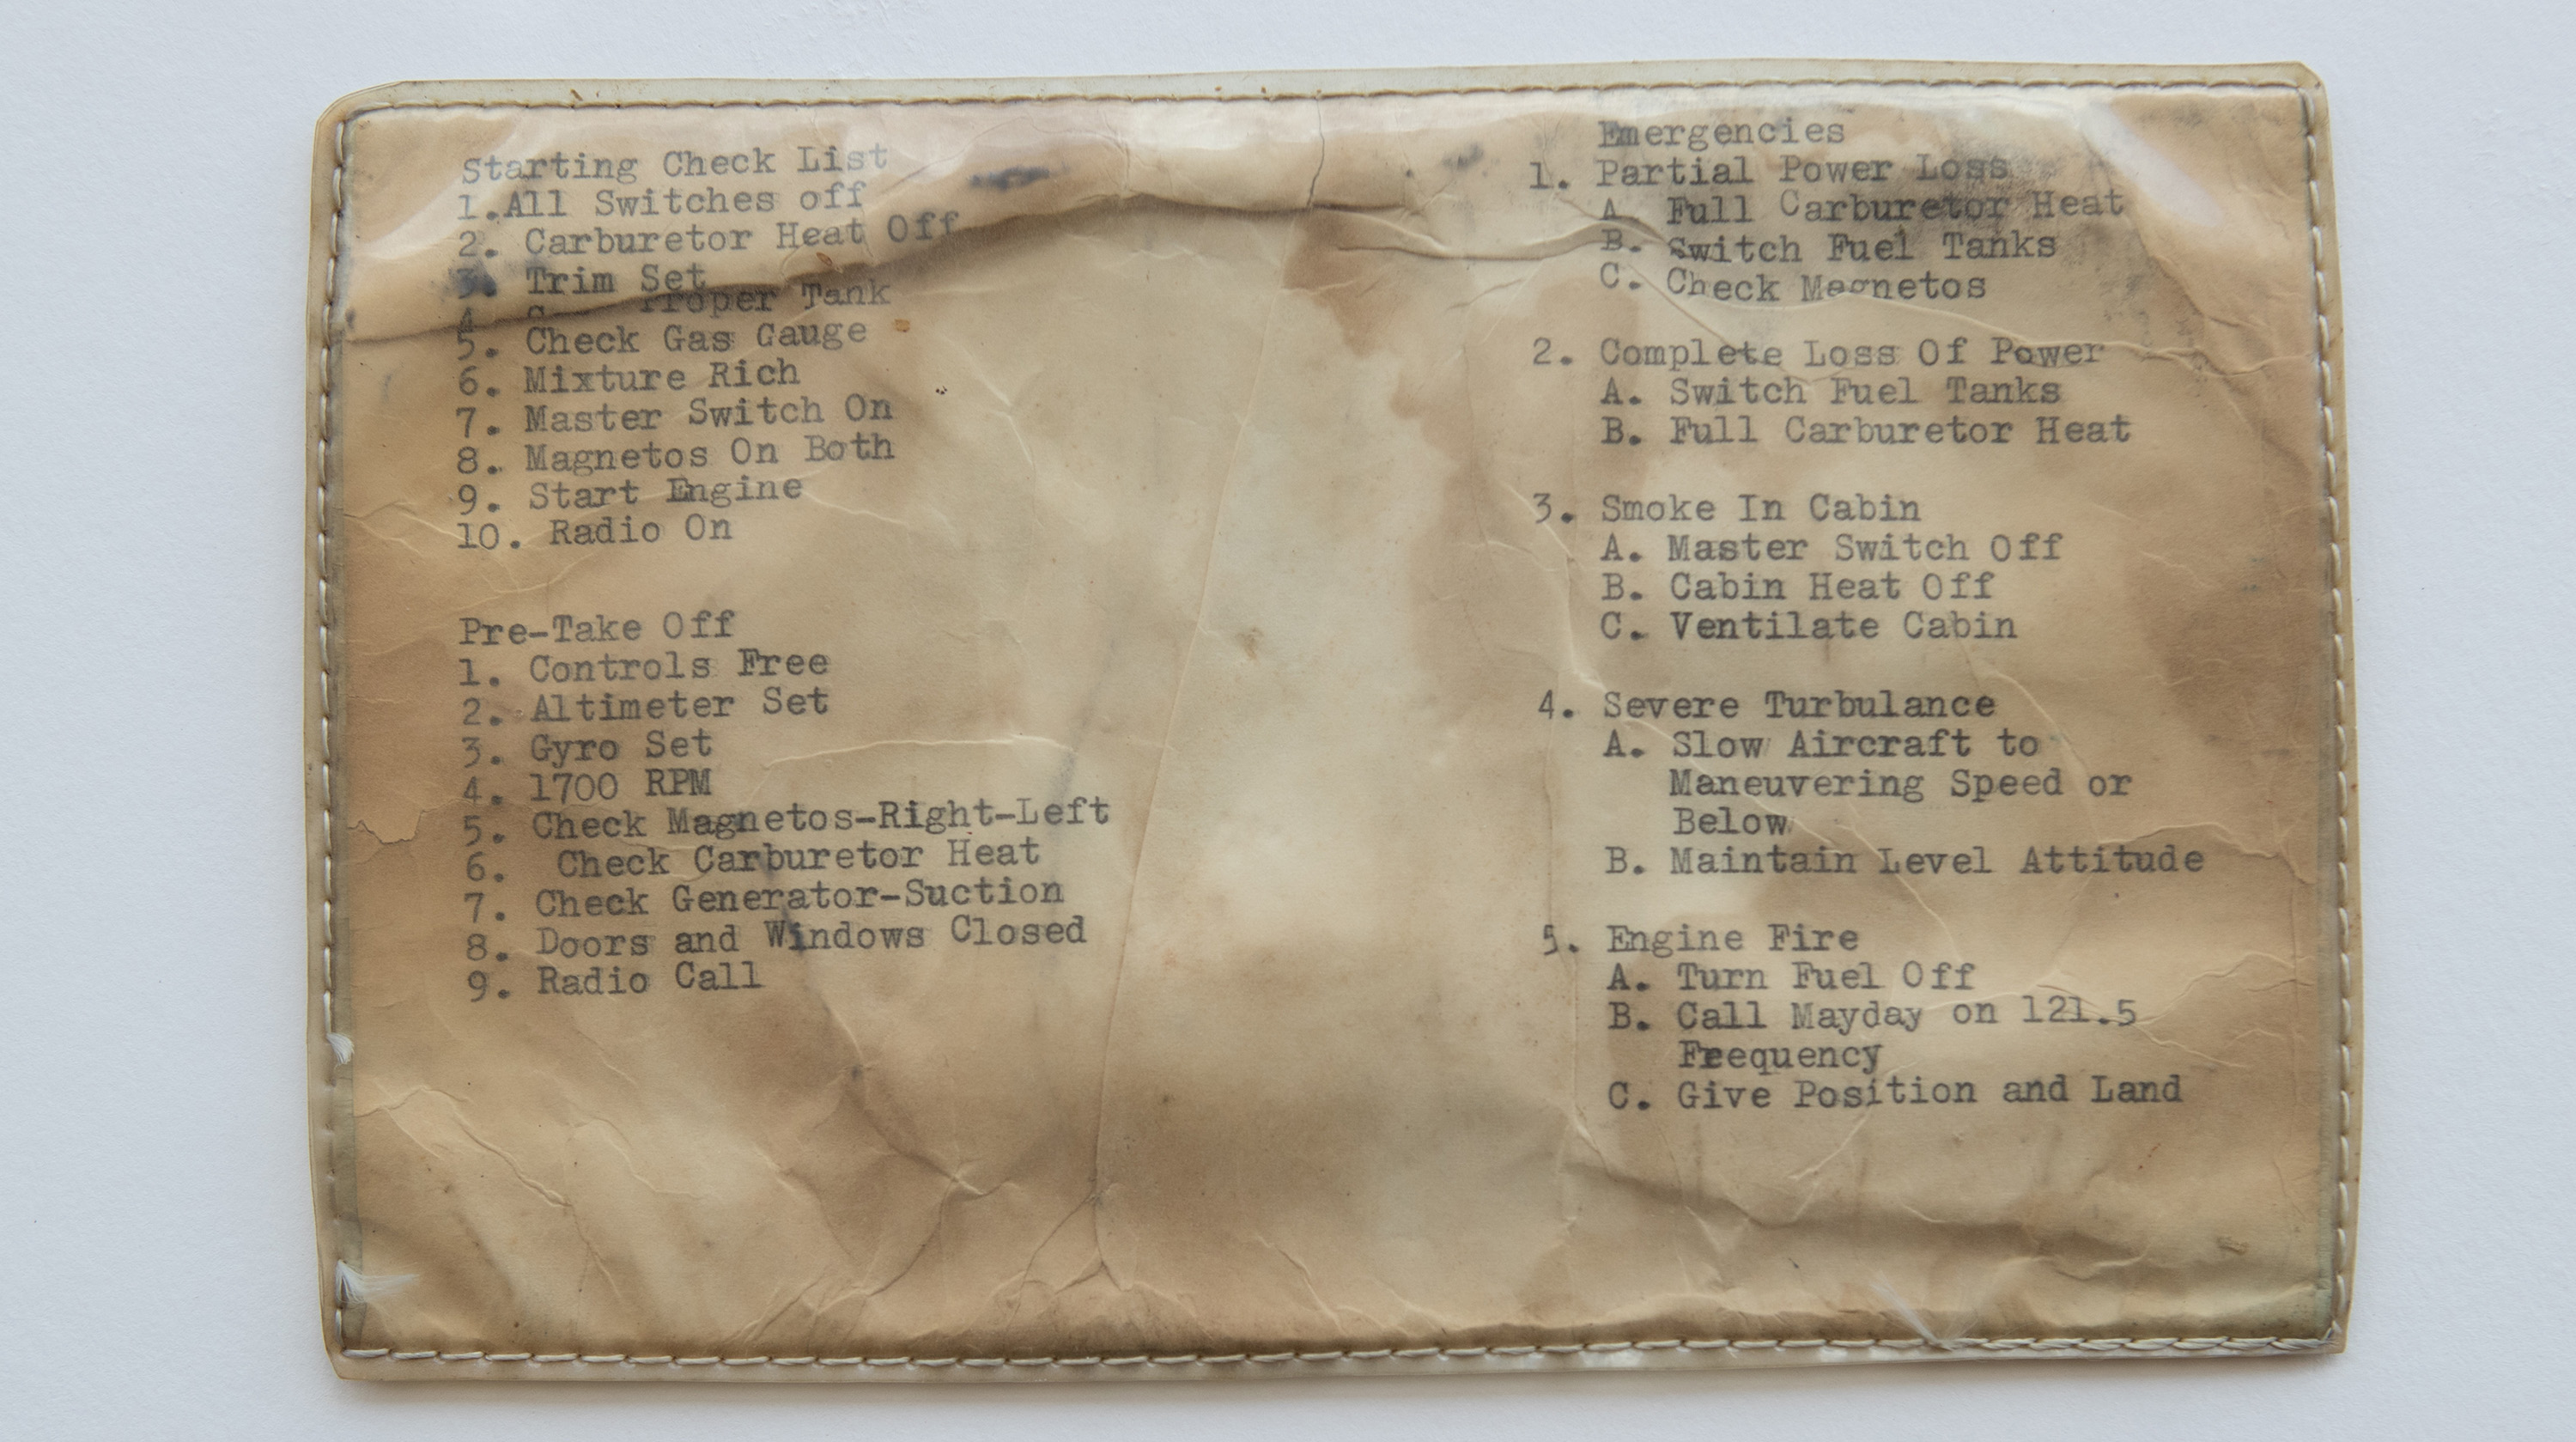 Starting Check List
1.All Switches off
2. Carburetor Heat Off
3. Trim Set
4 Proper Tank
5. Check Gas Gauge
6. Mixture Rich
7. Master Switch On
8. Magnetos On Both
9. Start Engine
10. Radio On
Pre-Take Off
1. Controls Free
2. Altimeter Set
3. Gyro Set
4. 1700 RPM
5. Check Magnetos-Right-Left
6. Check Carburetor Heat
7. Check Generator-Suction
8. Doors and Windows Closed
9. Radio Call
Emergencies
1. Partial Power Loss
A. Full Carburetor Heat
B. Switch Fuel Tanks
C. Check Magnetos
2. Complete Loss Of Power
A. Switch Fuel Tanks
B. Full Carburetor Heat
3. Smoke In Cabin
A. Master Switch Off
B. Cabin Heat Off
C. Ventilate Cabin
4. Severe Turbulance
A. Slow Aircraft to
Maneuvering Speed or
Below
B. Maintain Level Attitude
5. Engine Fire
A. Turn Fuel Off
B. Call Mayday on 121.5
Frequency
C. Give Position and Land